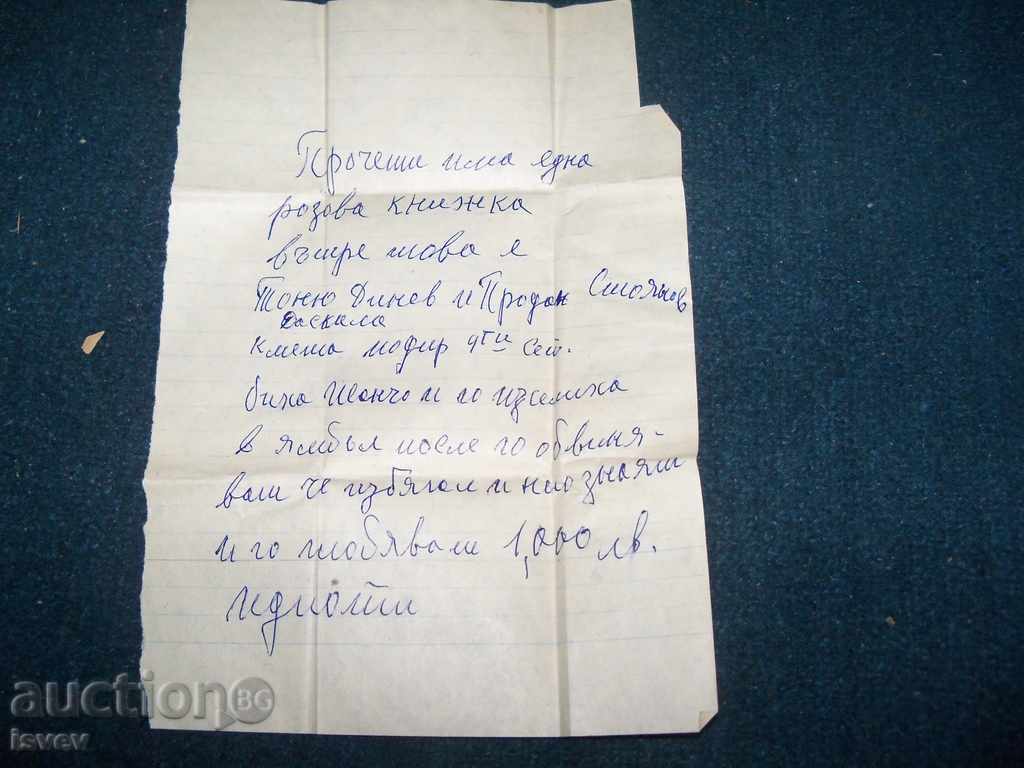 Прочети има една
розова книжка
вътре това е
Тоню Динев и Продан Стоянов
Даскала
Кмета подир 9ти Сеп.
биха Йончо и го
в Ямбъл после го обвиня-
ват че избягал и
и го глобяват 1,000 лв.
идиоти
auctionBG
isvev